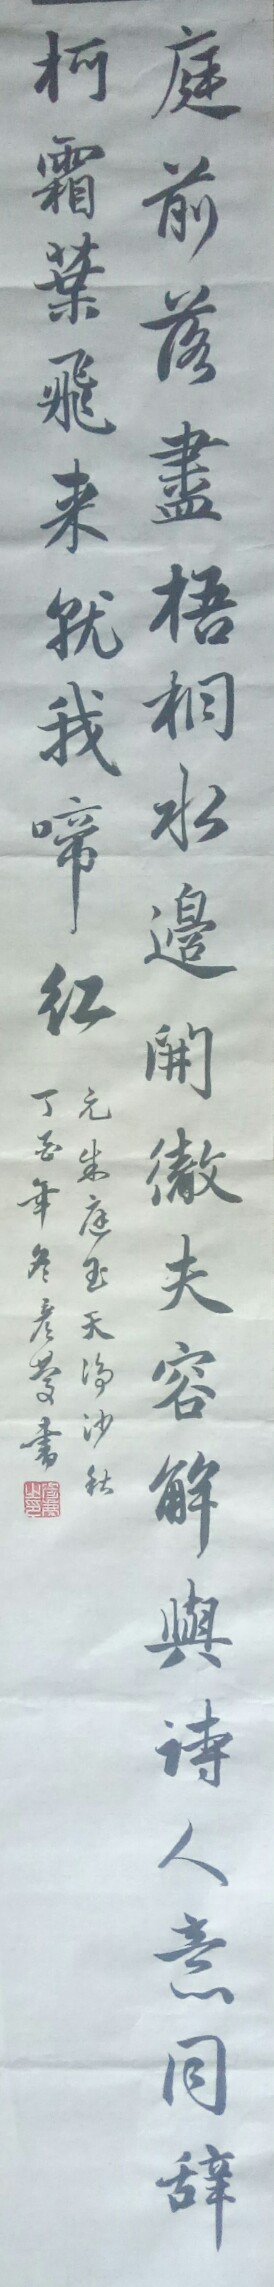 庭前落盡梧桐水邊開徹夫容解與詩人意同辞
柯霜葉飛来就我啼红
元朱庭玉天净沙秋
丁酉年冬彦莹書